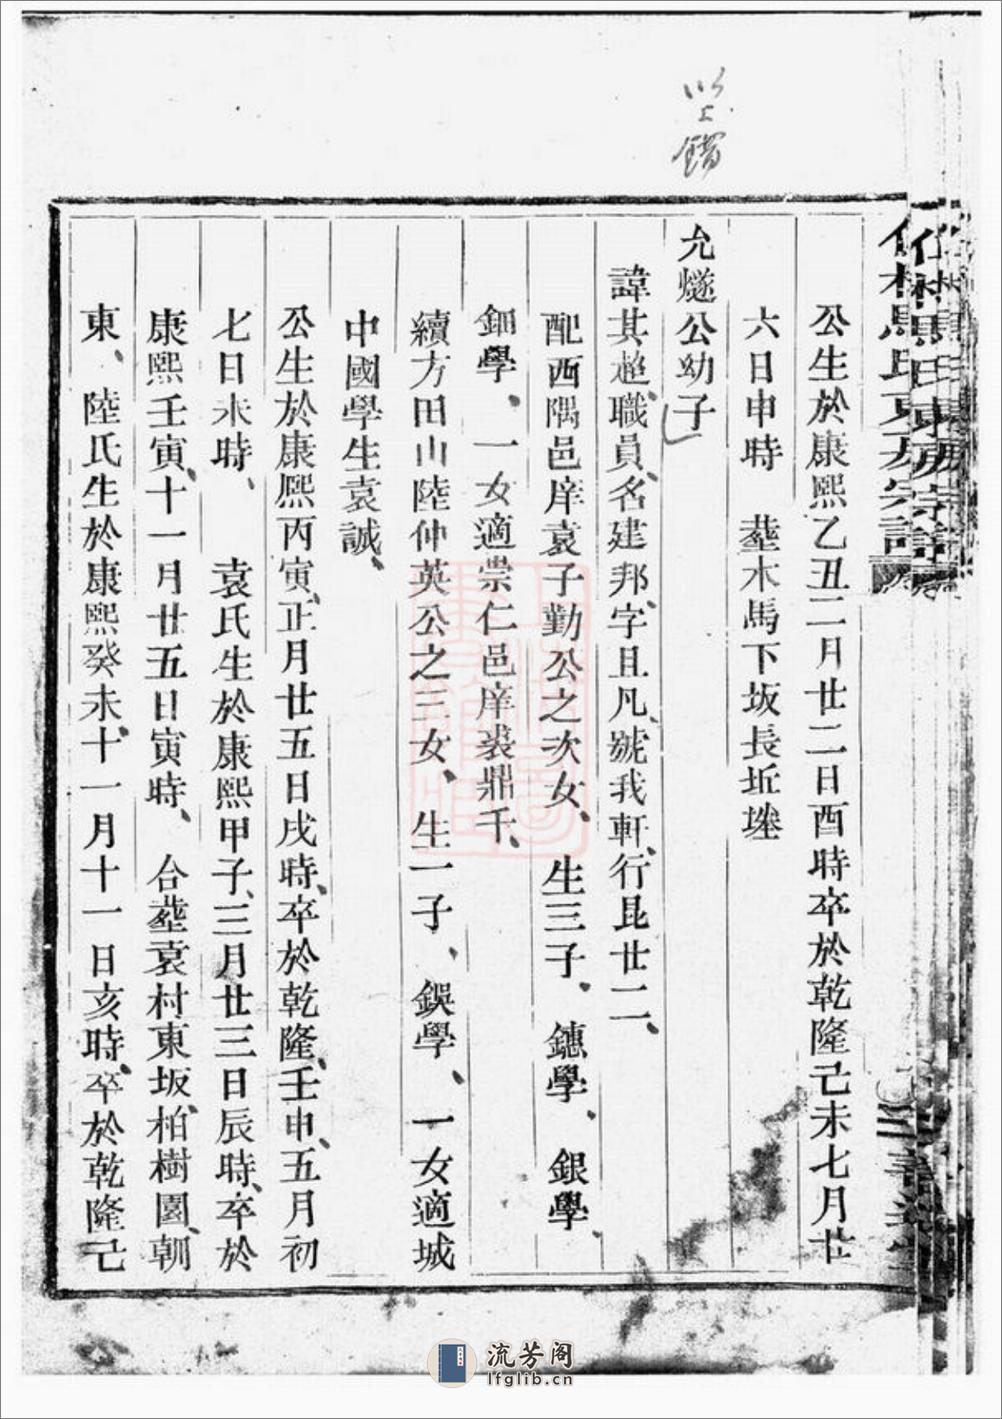 以上錯
公生於康熙乙丑二月廿二日酉時卒於乾隆己未七月廿
六日申時　塟木馬下坂長坵塝
允燧公幼子
諱其超、職員、名建邦、字且凡、號我軒、行昆廿二、
配西隅邑庠袁子勤公之次女、生三子、鏸學、銀學、
鈿學、一女適崇仁邑庠裘鼎千、
續方田山陸仲英公之三女、生一子、鋘學、一女適城
中國學生袁誠、
公生於康熙丙寅、正月廿五日戌時、卒於乾隆、壬申、五月初
七日未時、　袁氏生於康熙甲子、三月廿三日辰時、卒於
康熙壬寅、十一月廿五日寅時、合塟袁村東坂、柏樹園、朝
東、陸氏生於康熙癸未、十一月十一日亥時、卒於乾隆己
馬氏東房宗譜
流芳阁
lfglib.cn